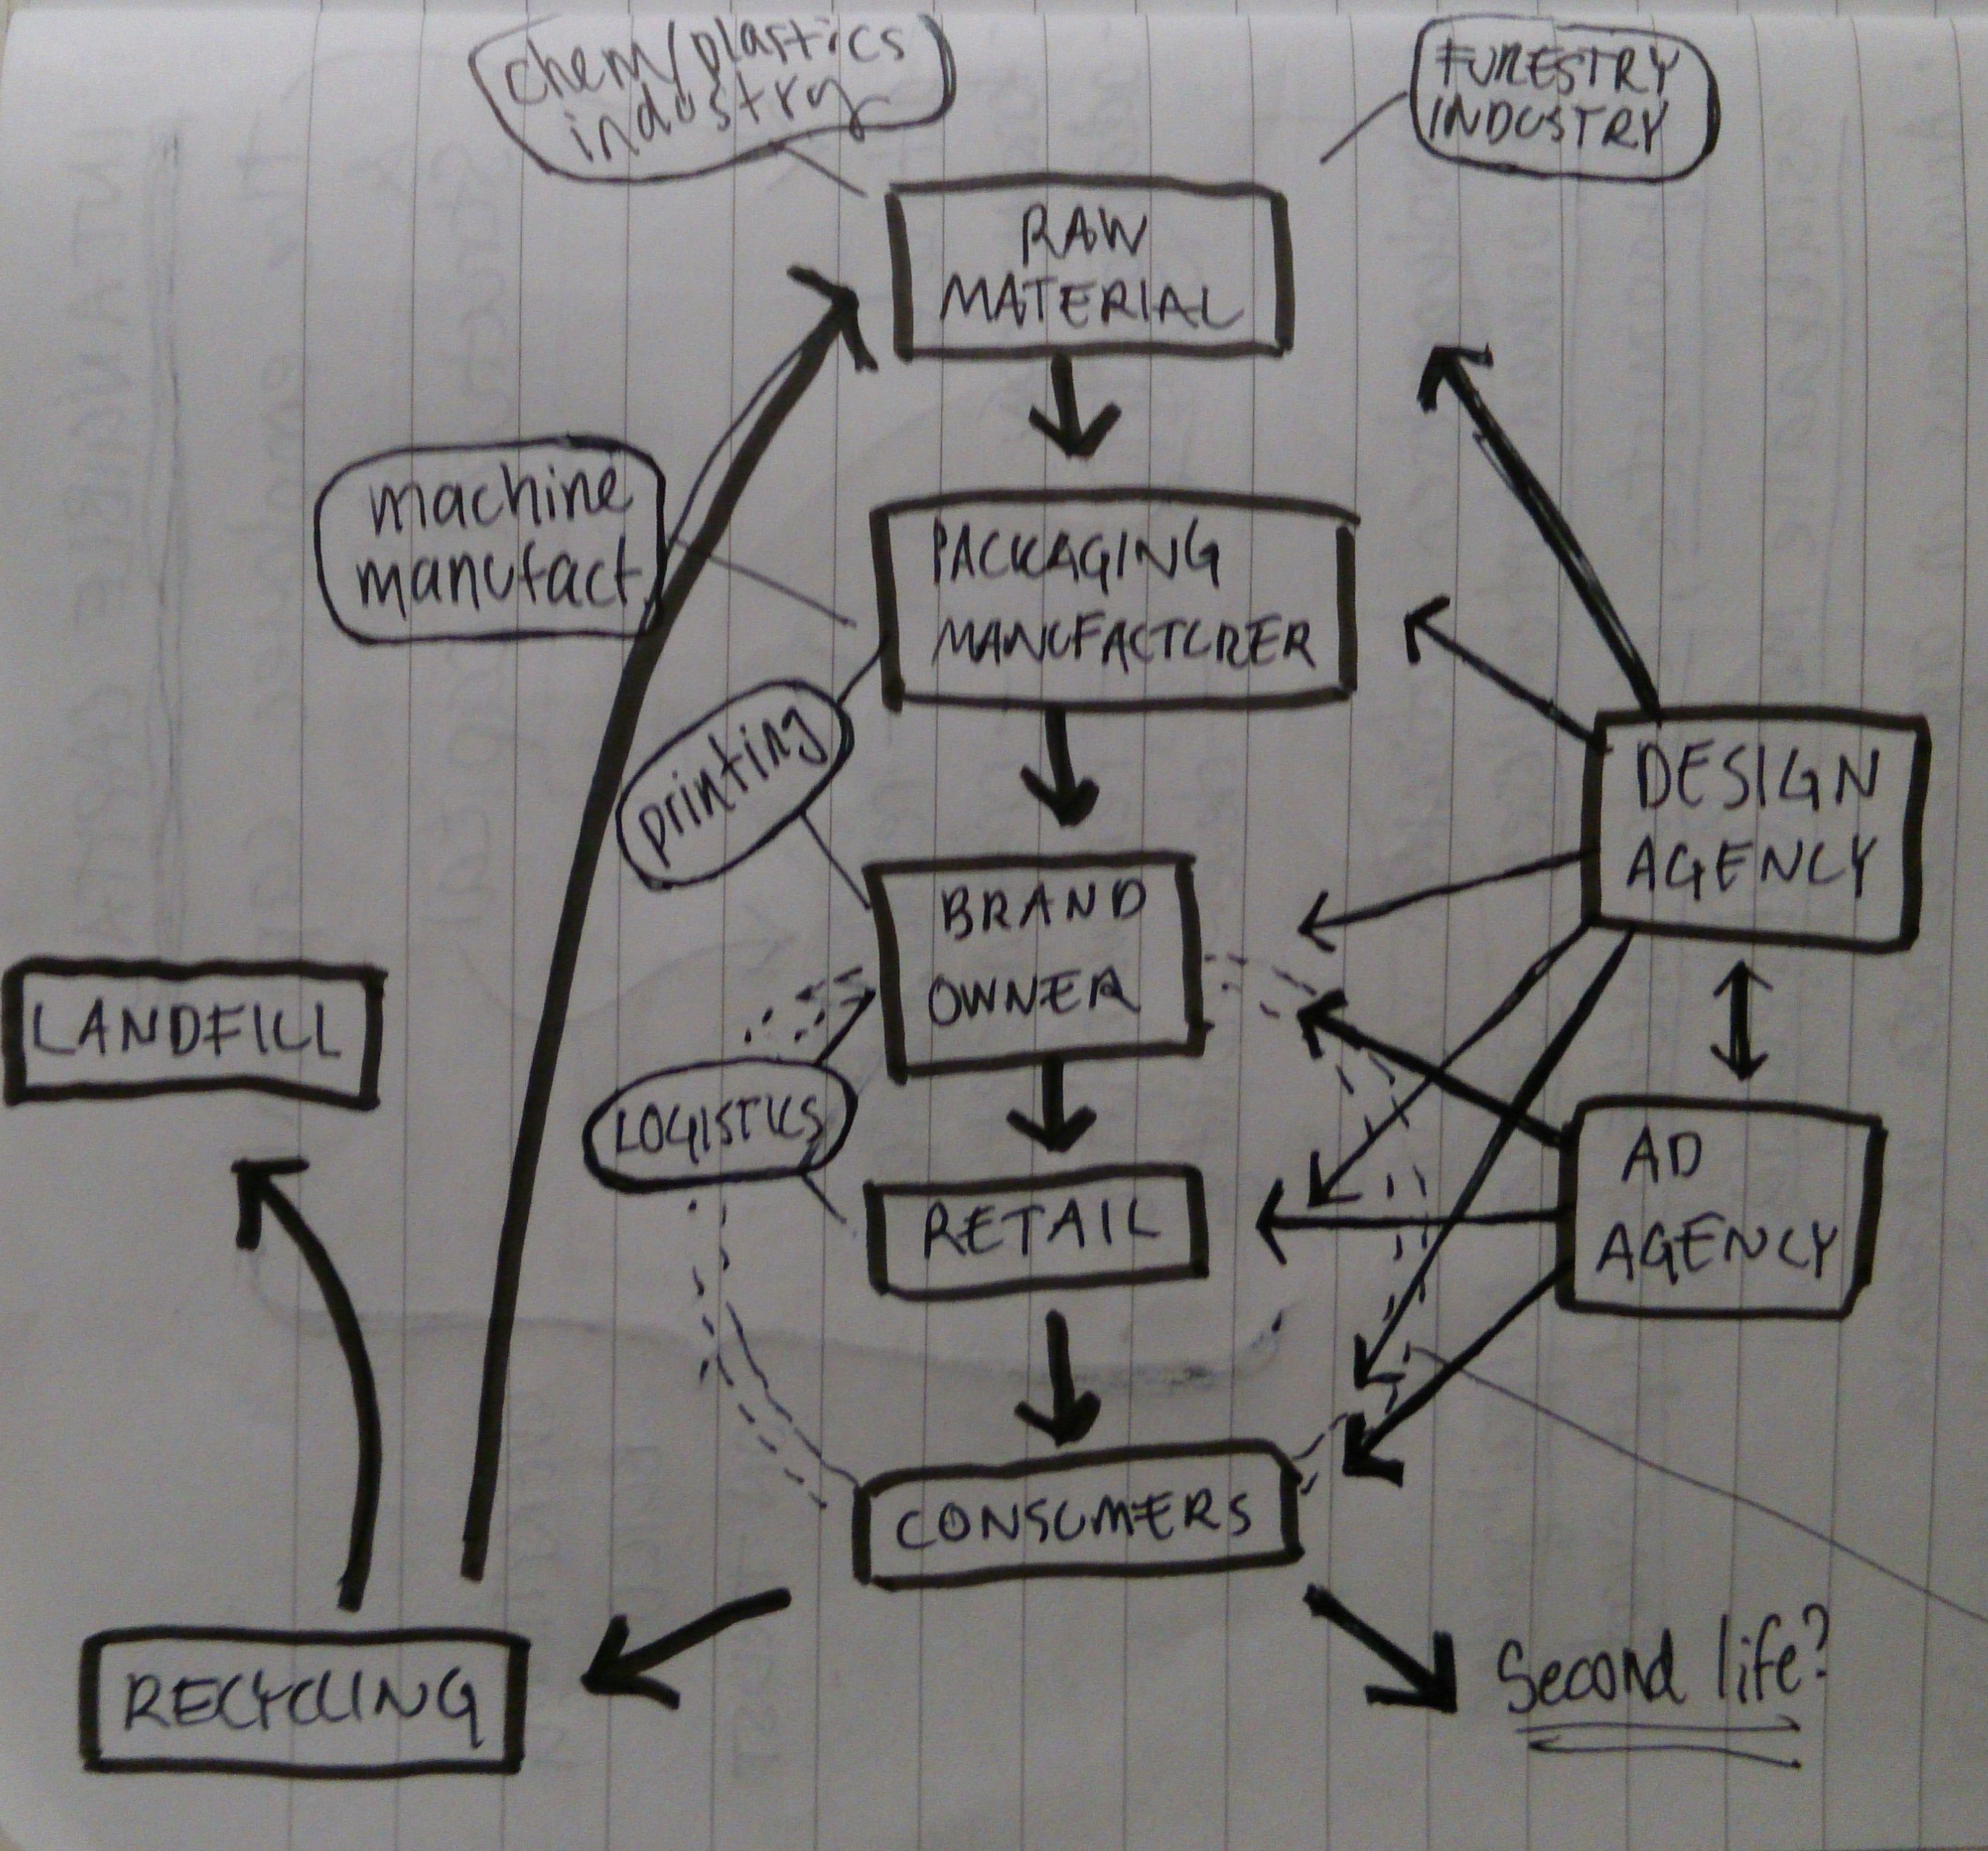 chem/plastics
industry
FORESTRY
INDUSTRY
RAW
MATERIAL
machine
manufact.
PACKAGING
MANUFACTURER
printing
DESIGN
AGENCY
BRAND
OWNER
LANDFILL
LOGISTICS
AD
AGENCY
RETAIL
CONSUMERS
RECYCLING
Second life?